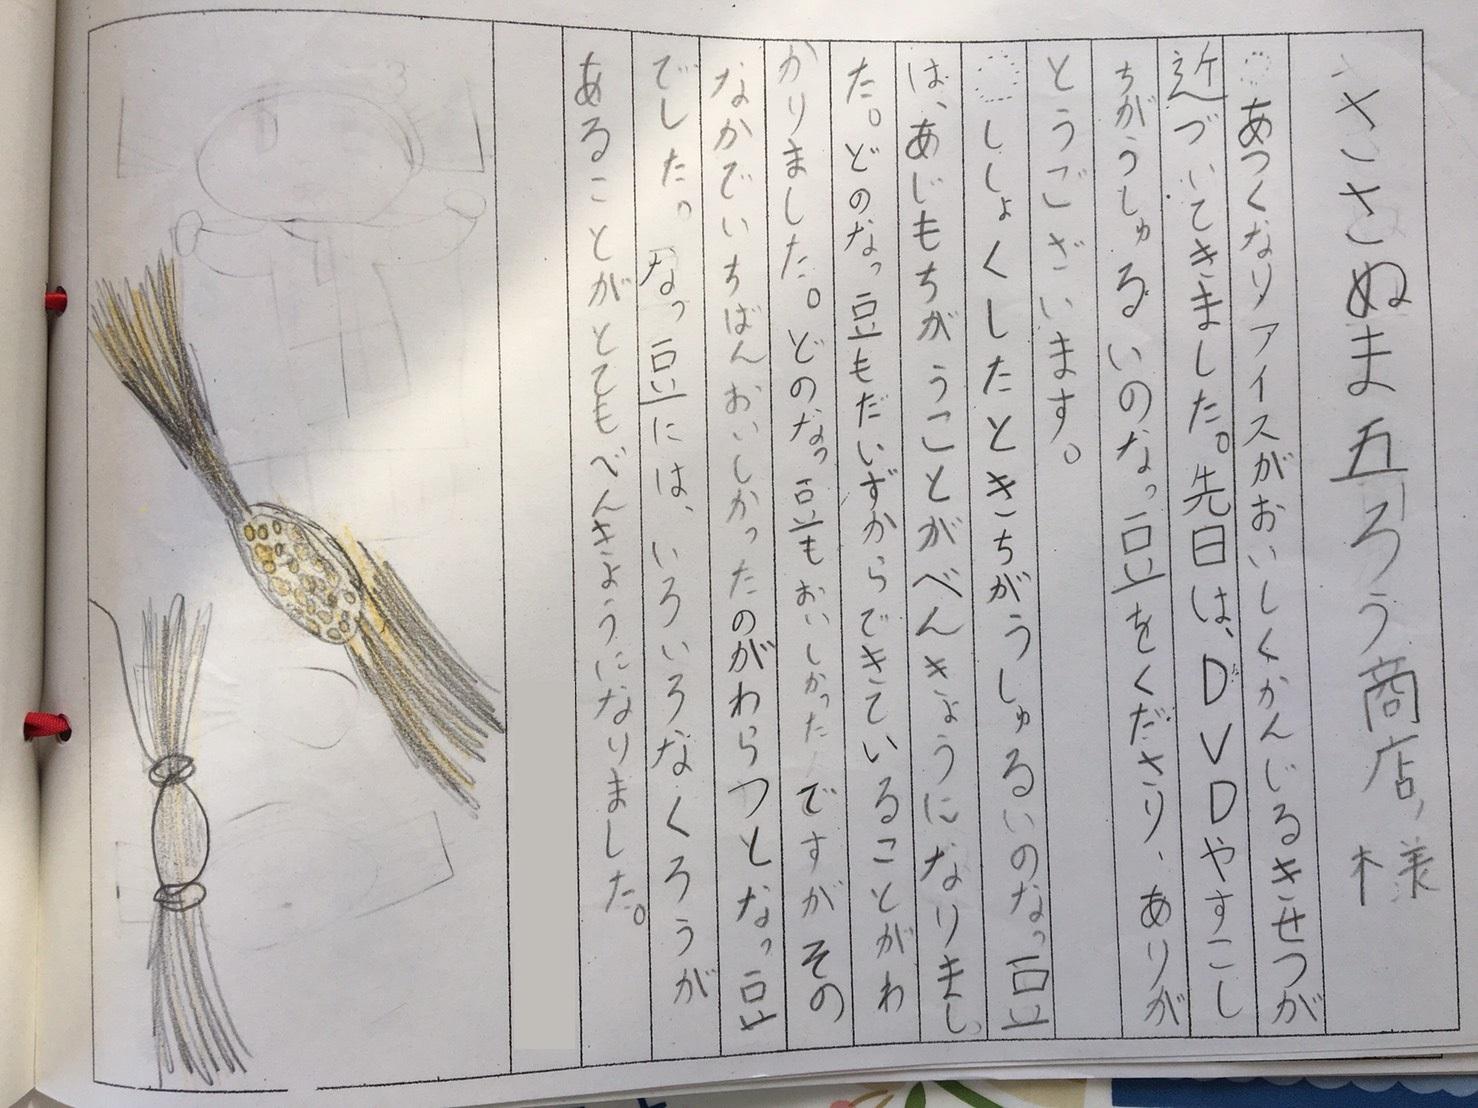 ささぬま五ろう商店様
あつくなりアイスがおいしくかんじるきせつが
近づいてきました。先日は、DVDやすこし
ちがうしゅるいのなっ豆をくださり、ありが
とうございます。
ししょくしたときちがうしゅるいのなっ豆
は、あじもちがうことがべんきょうになりまし
た。どのなっ豆もだいずからできていることがわ
かりました。どのなっ豆もおいしかったですがその
なかでいちばんおいしかったのがわらつとなっ豆
でした。なっ豆には、いろいろなくろうが
あることがとてもべんきょうになりました。